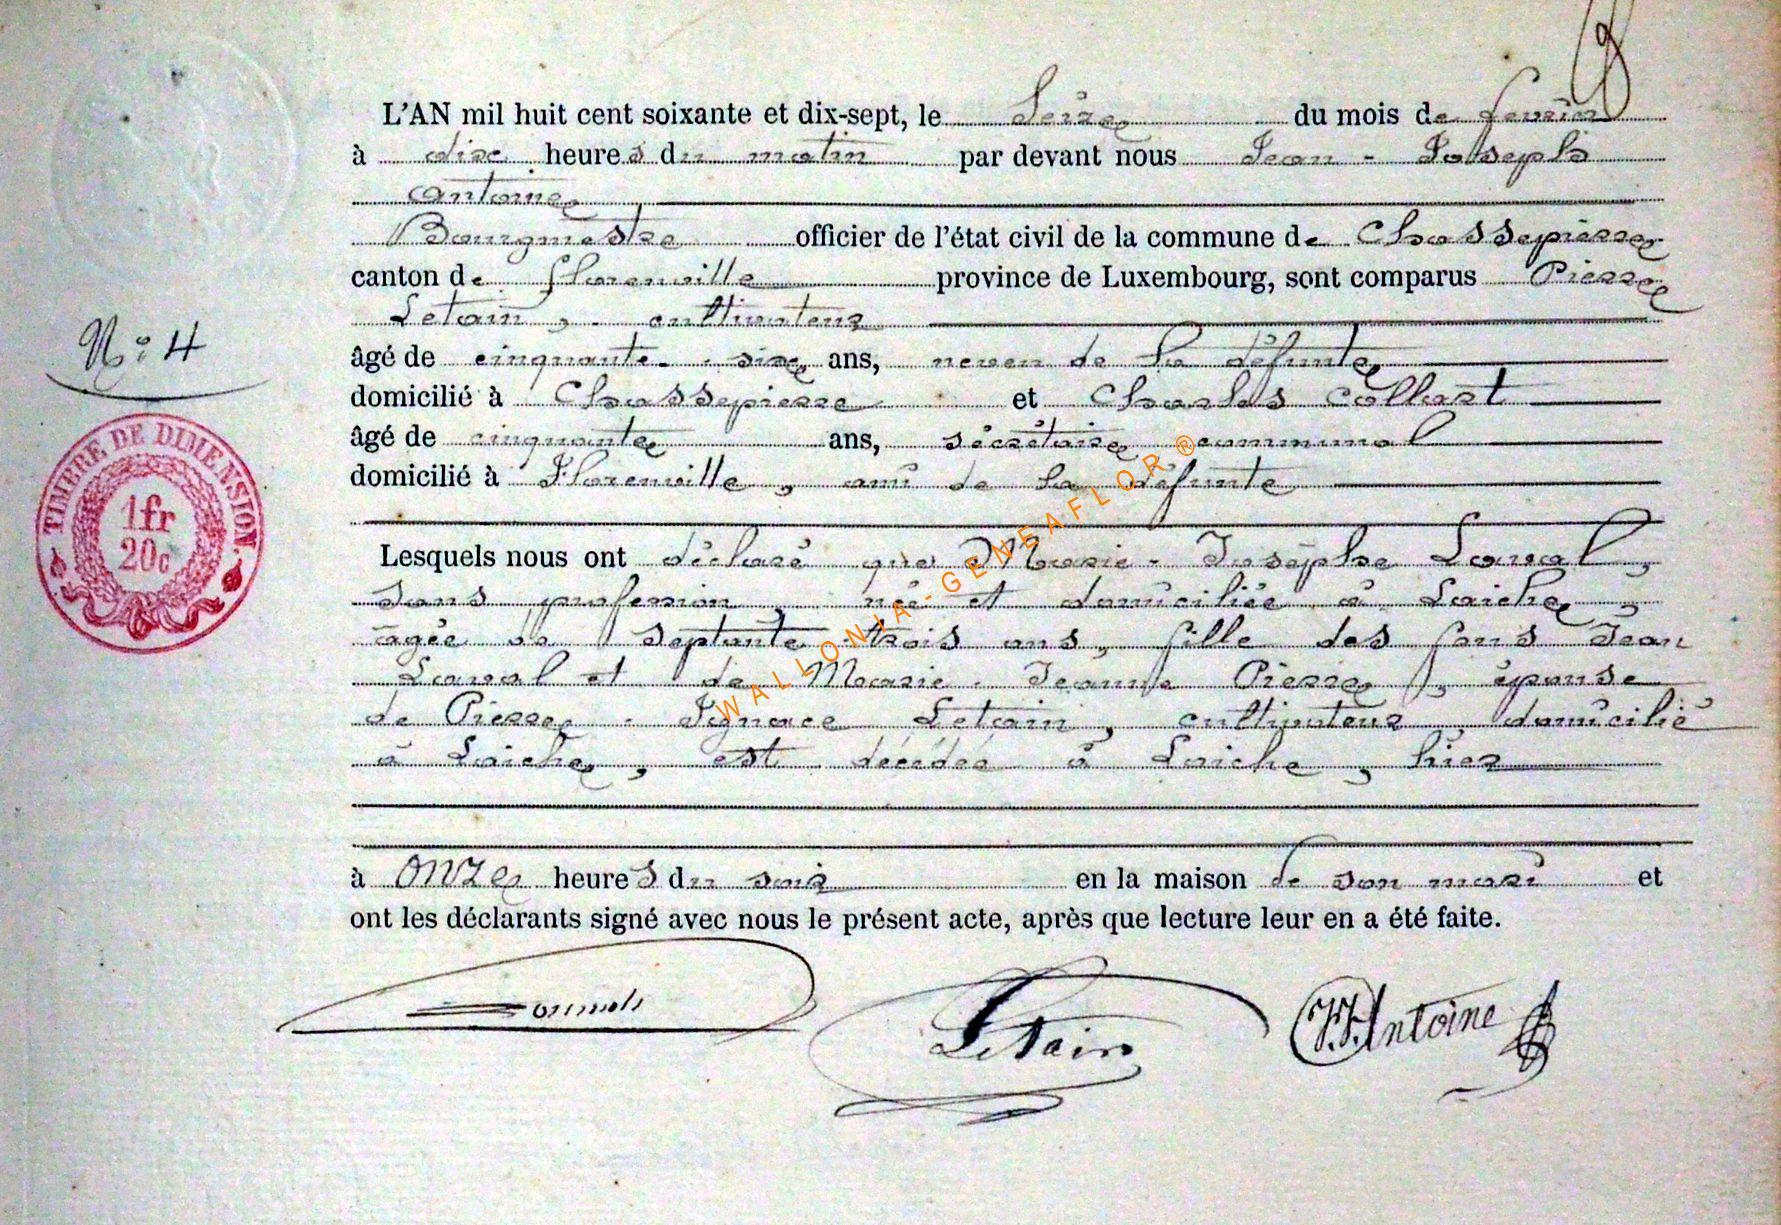 L'AN mil huit cent soixante et dix-sept, le Seize du mois de février
à dix heures du matin par devant nous Jean - Joseph
Antoine
Bourgmestre officier de l'état civil de la commune de Chassepierre
canton de florenville province de Luxembourg, sont comparus Pierre
Letain, cultivateur
âgé de cinquante - six ans, neveu de la défunte
domicilié à Chassepierre et Charles Collart
âgé de cinquante ans, sécrétaire communal
domicilié à Florenville, ami de la défunte
N.° 4
TIMBRE DE DIMENSION.
1fr
20c
Lesquels nous ont déclaré que Marie - Josèphe Laval,
sans profession, née et domiciliée à Laiche
âgée de septante - trois ans, fille des feus Jean
Laval et de Marie - Jeanne Pierre, épouse
de Pierre - Ignace Letain, cultivateur domicilié
à Laiche, est décédée à Laiche, hier
à onze heures du soir en la maison de son mari et
ont les déclarants signé avec nous le présent acte, après que lecture leur en a été faite.
Letain
J.J. Antoine
WALLONIA-GENEAFLOR®